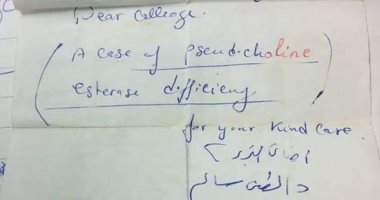 Dear colleage.
( A case of pseudicholine
esterase difficieny )
for your kind care
سالم